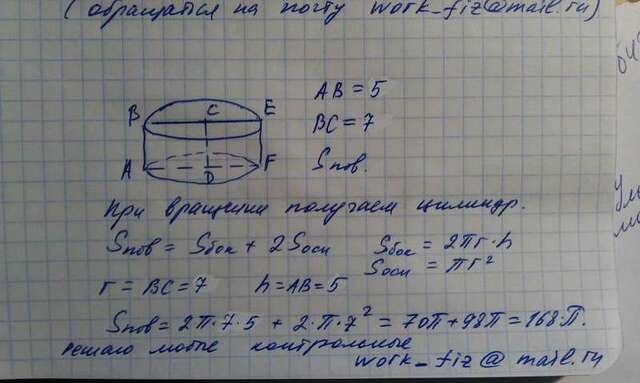 (обращаться на почту work_fiz@mail.ru)
B C E
A D F
AB = 5
BC = 7
Sпов.
При вращении получаем цилиндр.
Sпов = Sбок + 2Sосн Sбок = 2πr·h
Sосн = πr²
r = BC = 7 h = AB = 5
Sпов = 2π·7·5 + 2·π·7² = 70π + 98π = 168·π.
решаю любые контрольные
work_fiz@mail.ru